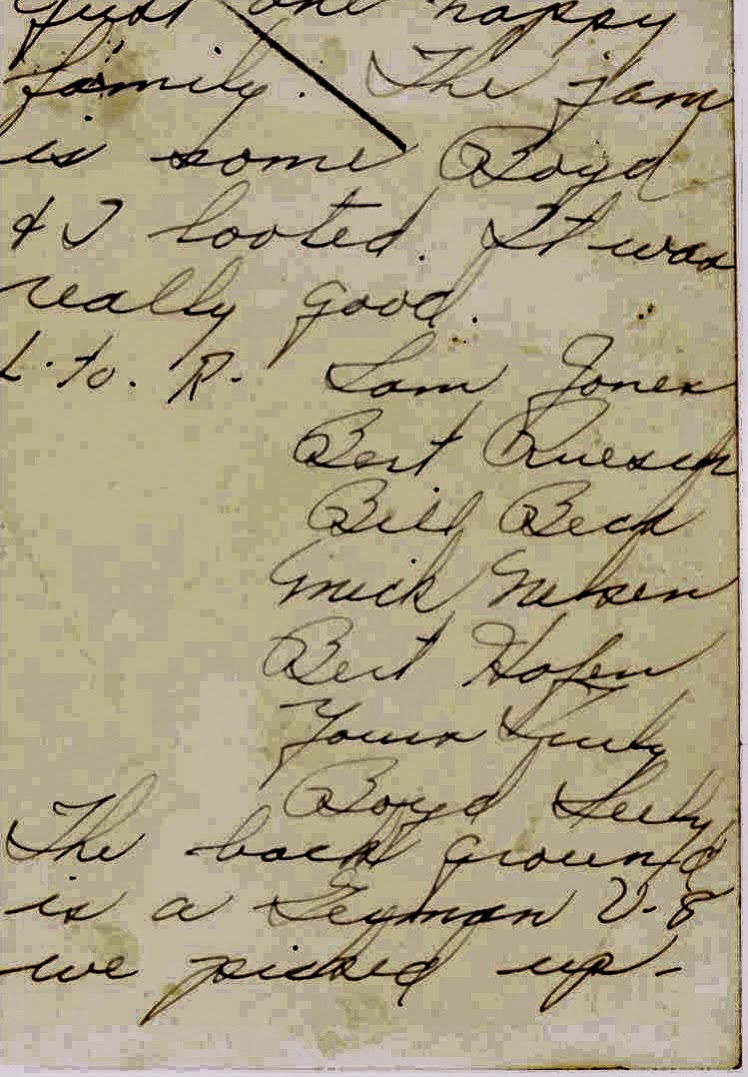 Just one happy
family. The jam
is some Boyd
& I looted. It was
really good.
L. to. R. Sam Jones
Bert Ruesch
Bill Beck
Mick Nelsen
Bert Hafen
Yours Truly
Boyd Seely
The back ground
is a German V-8
we picked up-